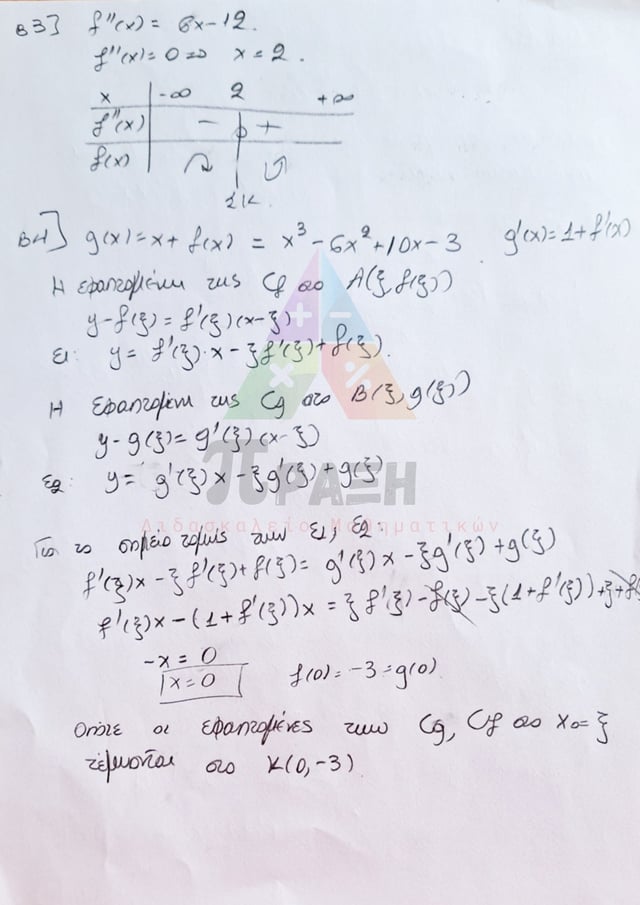 Β3] f''(x) = 6x-12.
f''(x)=0 => x=2.
x | -∞ 2 +∞
f''(x) | - 0 +
f(x)
Σ.Κ.
Β4] g(x)=x+f(x) = x³-6x²+10x-3 g'(x)=1+f'(x)
Η εφαπτομένη της Cf στο Α(ξ, f(ξ))
y-f(ξ)=f'(ξ)(x-ξ)
ε1: y=f'(ξ)·x-ξf'(ξ)+f(ξ).
Η εφαπτομένη της Cg στο Β(ξ, g(ξ))
y-g(ξ)=g'(ξ)(x-ξ)
ε2: y= g'(ξ)x-ξg'(ξ)+g(ξ)
πΡΑΞΗ
Διδασκαλείο Μαθηματικών
Για το σημείο τομής των ε1, ε2:
f'(ξ)x-ξf'(ξ)+f(ξ)=g'(ξ)x-ξg'(ξ)+g(ξ)
f'(ξ)x-(1+f'(ξ))x=ξf'(ξ)-f(ξ)-ξ(1+f'(ξ))+ξ+f(ξ)
-x=0
x=0 f(0)=-3=g(0)
Οπότε οι εφαπτομένες των Cg, Cf στο x0=ξ
τέμνονται στο Κ(0,-3)